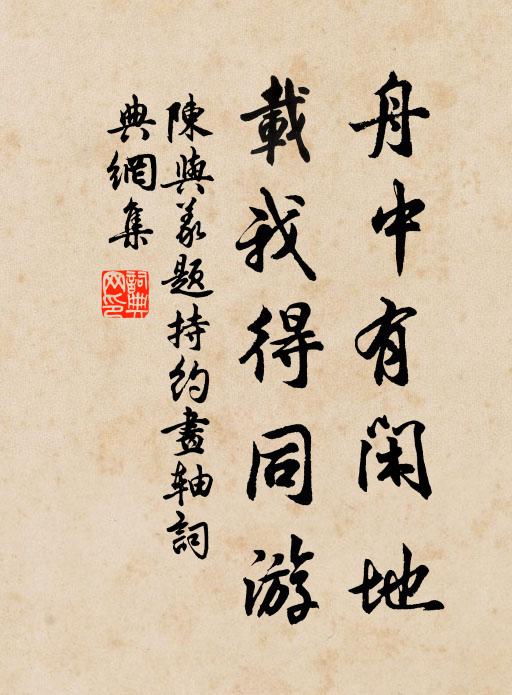 舟中有閑地
載我得同游
陳與義題持約畫軸詞
典網集
詞典网印